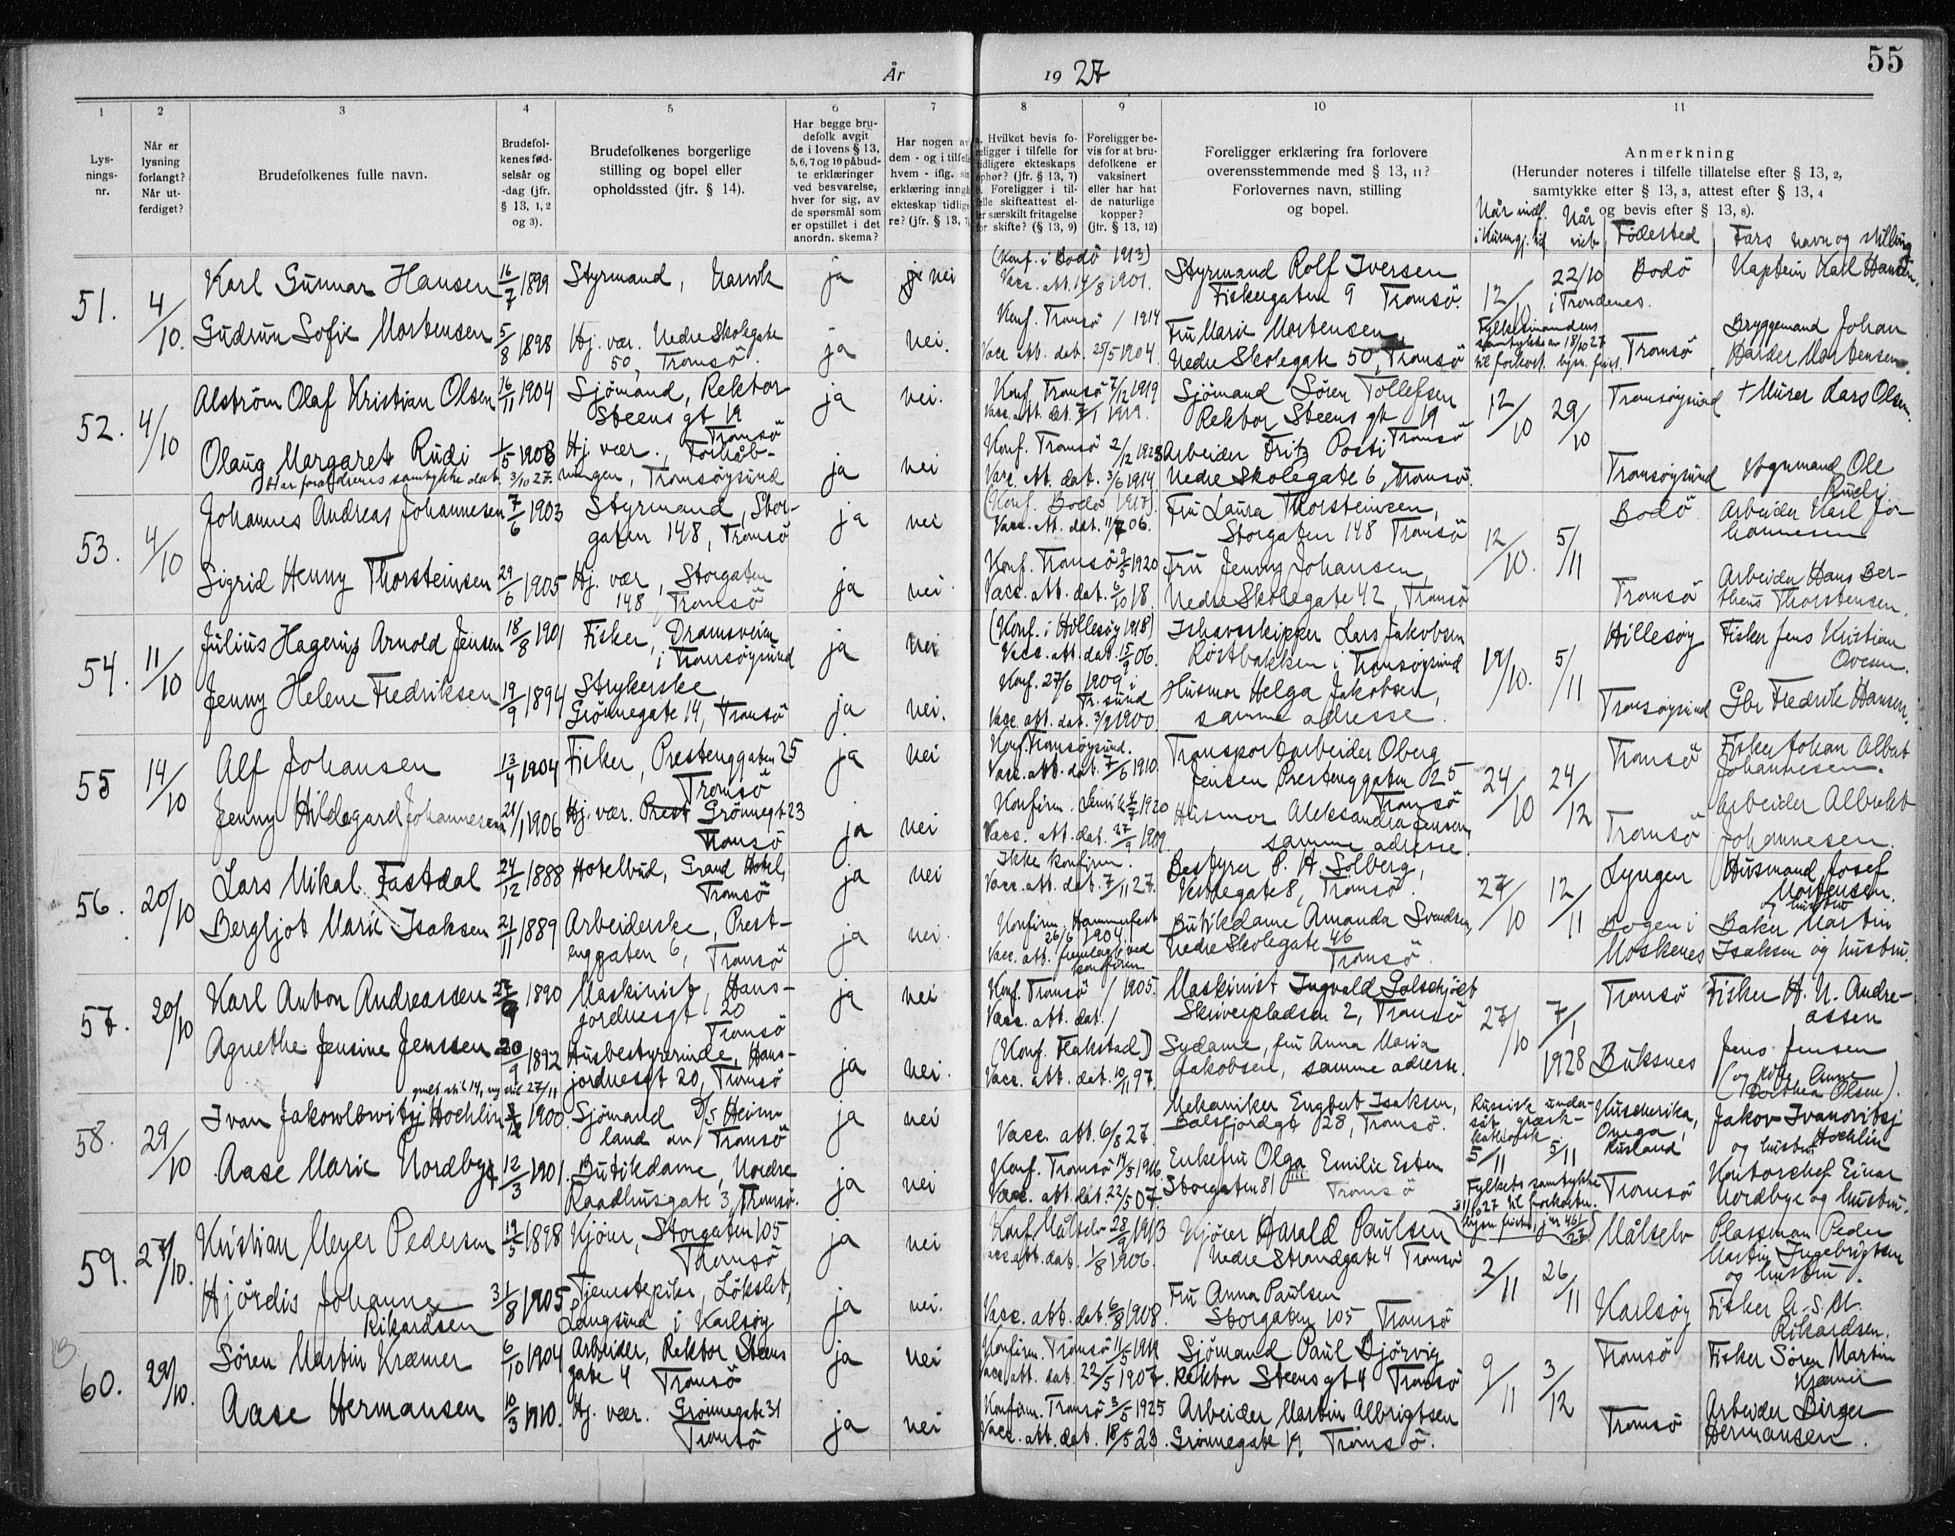 År 1927
55
1 2 3 4 5 6 7 8 9 10 11
Lysningsnr.
Når er lysning forlangt? Når utferdiget?
Brudefolkenes fulle navn.
Brudefolkenes fødselsår og -dag (jfr. § 13, 1, 2 og 3).
Brudefolkenes borgerlige stilling og bopel eller opholdssted (jfr. § 14).
Har begge brudefolk avgit de i lovens § 13, 5, 6, 7 og 10 påbudte erklæringer ved besvarelse, hver for sig, av de spørsmål som er opstillet i det anordn. skema?
Har nogen av dem - og i tilfelle hvem - iflg. erklæring ekteskap tidligere? (jfr. § 13, 7)
Hvilket bevis foreligger i tilfelle for tidligere ekteskaps ophør? (jfr. § 13, 7) Foreligger i tilfelle skifteattest eller særskilt fritagelse for skifte? (§ 13, 9)
Foreligger bevis for at brudefolkene er vaksinert eller har hat de naturlige kopper? (jfr. § 13, 12)
Foreligger erklæring fra forlovere overensstemmende med § 13, 11? Forlovernes navn, stilling og bopel.
Anmerkning
(Herunder noteres i tilfelle tillatelse efter § 13, 2, samtykke efter § 13, 3, attest efter § 13, 4 og bevis efter § 13, 8).
Når
Når viet
Fødested
Fars navn og stilling
51. 4/10.
Karl Gunnar Hansen 16/7 1899 Styrmand, Narvik ja nei
(Konf. i Bodö 1913)
Vacc. att. 14/8 1901.
Styrmand Rolf Iversen
Fiskergaten 9 Tromsö.
12/10 22/10 i Trondenes. Bodö Kaptein Karl Hansen.
Gudrun Sofie Mortensen 5/8 1898 Hj. vær. Nedre Skolegate
50, Tromsö. ja nei.
Konf. Tromsö / 1914
Vacc. att. dat. 25/5 1904.
Fru Marie Mortensen
Nedre Skolegate 50, Tromsö
Fylkesmandens
samtykke av 18/10 27
til forkort. lysn. frist.
Tromsö Bryggemand Johan
Harder Mortensen.
52. 4/10
Alström Olaf Kristian Olsen 16/11 1904 Sjömand, Rektor
Steens gt 19
Tromsö ja nei.
Konf. Tromsö 7/12 1919
Sjömand Sören Tollefsen
Rektor Steens gt 19
Tromsö
12/10 29/10 Tromsöysund + Murer Lars Olsen.
Olaug Margaret Rudi 1/5 1908 Hj. vær., Forhåb-
ningen, Tromsöysund ja nei
Har forældrenes samtykke dat. 3/10 27.
Konf. Tromsö 2/12 1923
Vacc. att. dat. 3/6 1914
Arbeider Fritz Posti
Nedre Skolegate 6, Tromsö.
Tromsöysund Vognmand Ole
Rudi.
53. 4/10
Johannes Andreas Johannesen 7/6 1903 Styrmand, Stor-
gaten 148, Tromsö ja nei
(Konf. Bodö 1917)
Vacc. att. dat. 11/7 06.
Fru Laura Thorsteinsen,
Storgaten 148 Tromsö
12/10. 5/11 Bodö Arbeider Karl Jo-
hannesen
Sigrid Henny Thorsteinsen 29/6 1905 Hj. vær, Storgaten
148, Tromsö ja nei
Konf. Tromsö 9/5 1920
Vacc. att. dat. 6/10 18.
Fru Jenny Johansen,
Nedre Skolegate 42, Tromsö
Tromsö Arbeider Hans Ber-
theus Thorstensen.
54. 11/10
Julius Hagerup Arnold Jensen 18/8 1901 Fisker, Dramsveien
i Tromsöysund ja nei
(Konf. i Hillesöy 1918)
Vacc. att. dat. 15/9 06.
Ishavsskipper Lars Jakobsen
Röstbakken i Tromsöysund
19/10. 5/11 Hillesöy Fisker Jens Kristian
Ovesen.
Jenny Helene Fredriksen 19/9 1894 Strykerske,
Grönnegate 14, Tromsö ja nei.
Konf. 27/6 1909 i
Tr. sund
Vacc. att. dat. 3/9 1900.
Husmor Helga Jakobsen,
samme adresse.
Tromsöysund Gbr Fredrik Hansen.
55 14/10
Alf Johansen 13/4 1904 Fisker, Prestenggaten 25
Tromsö ja nei
Konf. Tromsöysund.
Vacc. att. dat. 7/6 1910.
Transportarbeider Oberg
Jensen Prestenggaten 25
Tromsö
24/10 24/12 Tromsö Fisker Johan Albert
Johannesen.
Jenny Hildegard Johannesen 21/1 1906 Hj. vær. Grönnegt 23
Tromsö ja nei
Vacc. att. dat. 27/9 1909.
Husmor Aleksandra Jensen,
samme adresse.
Tromsö Arbeider Albrekt
Johannesen.
56. 20/10
Lars Mikal Fastdal 24/12 1888 Hotelbud, Grand Hotel,
Tromsö ja nei
Ikke konfirm.
Vacc. att. dat. 7/11 27.
Bestyrer P. H. Solberg,
Vestregate 8, Tromsö.
27/10 12/11 Lyngen Husmand Josef
Mortensen.
og hustru
Bergljot Marie Isaksen 21/11 1889 Arbeiderske, Prest-
enggaten 6, Tromsö ja nei.
Konfirm. Hammerfest
26/6 1904.
Vacc. att. fremlagt ved
konfirm
Butikdame Amanda Svendsen,
Nedre Skolegate 46
Tromsö.
Bogen i
Moskenes Baker Martin
Isaksen og hustru.
57. 20/10
Karl Anton Andreassen 27/9 1890 Maskinist, Hans-
jordnesgt 20
Tromsö ja nei
Konf. Tromsö / 1905.
Vacc. att. dat. /
Maskinist Ingvald
Skriverpladsen 2, Tromsö
27/10 7/1 1928 Tromsö Fisker H. N. Andre-
assen
Agnethe Jensine Jenssen 20/9 1892 Husbestyrerinde, Hans-
jordnesgt 20, Tromsö ja nei.
(Konf. Flakstad)
Vacc. att. dat. 10/11 97.
Sydame, fru Anna Maria
Jakobsen, samme adresse.
Buksnes Jens Jensen
(og Anne
Dorthea Olsen).
58. 29/10
Ivan Jakowlewitsj Hochlin 1900. Sjömand D/S Heim-
land av Tromsö ja nei
Vacc. att. 6/8 27.
Mekaniker Engbert Isaksen,
Balsfjordgt 28, Tromsö.
Russisk under-
såt, græsk-
katholsk
5/11 5/11
Onega,
Rusland Jakov Ivanovitsj
Hochlin
og hustru
Aase Marie Nordbye 12/3 1901. Butikdame, Nordre
Raadhusgate 3, Tromsö. ja nei
Konf. Tromsö 14/5 1916
Vacc. att. dat. 22/5 07.
Enkefru Olga Emilie Esten
Storgaten 81 Tromsö
Fylkets samtykke
31/10 27 til forkortn.
Tromsö Kontorchef Einar
Nordbye og hustru.
59. 27/10.
Kristian Meyer Pedersen 19/5 1898 Kjörer, Storgaten 105
Tromsö ja nei
Konf. Målselv 28/9 1913
Vacc. att. dat. 1/8 1906.
Kjörer Harald Paulsen
Nedre Strandgate 4 Tromsö
2/11 26/11 Målselv Plassman Peder
Martin Ingebrigtsen
og hustru.
Hjördis Johanne
Rikardsen 31/8 1905 Tjenestepike, Lökslet,
Langsund i Karlsöy ja nei.
Vacc. att. dat. 6/8 1908.
Fru Anna Paulsen
Storgaten 105, Tromsö
Karlsöy Fisker
Rikardsen.
60. 29/10.
Sören Martin Kræmer 6/10 1904 Arbeider, Rektor Steens
gate 4 Tromsö ja nei
Konfirm. Tromsö 11/5 1919
Vacc. att. dat. 22/5 1907.
Sjömand Paul Björvig
Rektor Steensgt 4 Tromsö
9/11 3/12 Tromsö Fisker Sören Martin
Kræmer
Aase Hermansen 10/3 1910. Hj. vær. Grönnegate 31
Tromsö ja nei
Konfirm. Tromsö 3/5 1925
Vacc. att. dat. 18/5 23.
Arbeider Martin Albrigtsen
Grönnegate 19 Tromsö.
Tromsö Arbeider Birger
Hermansen.